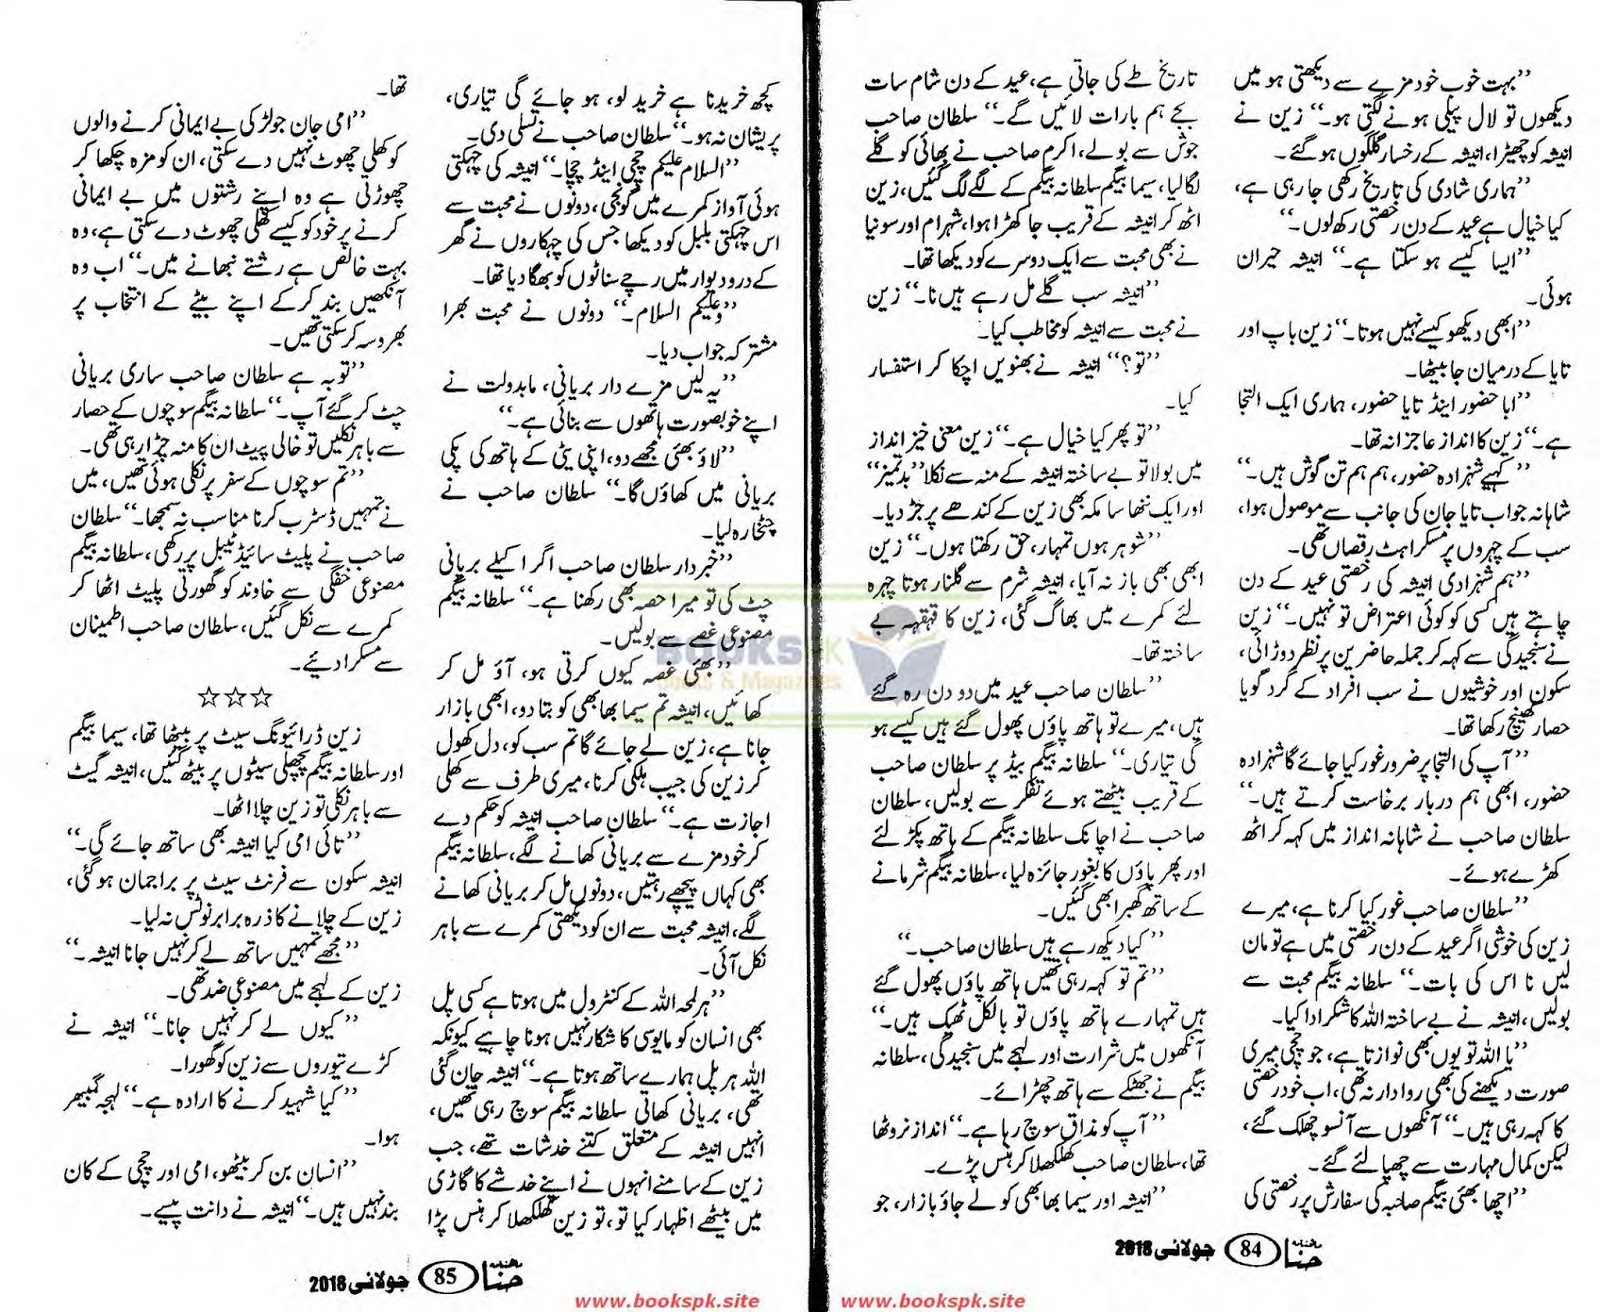 ”بہت خوب خود مزے سے دیکھتی ہو میں
دیکھوں تو لال پیلی ہونے لگتی ہو۔“ زین نے
انیشہ کو چھیڑا، انیشہ کے رخسار گلگوں ہو گئے۔
”ہماری شادی کی تاریخ رکھی جا رہی ہے،
کیا خیال ہے عید کے دن رخصتی رکھ لوں۔“
”ایسا کیسے ہو سکتا ہے۔“ انیشہ حیران
ہوئی۔
”ابھی دیکھو کیسے نہیں ہوتا۔“ زین باپ اور
تایا کے درمیان جا بیٹھا۔
”ابا حضور اینڈ تایا حضور، ہماری ایک التجا
ہے۔“ زین کا انداز عاجزانہ تھا۔
”کہیے شہزادہ حضور، ہم ہم تن گوش ہیں۔“
شاہانہ جواب تایا جان کی جانب سے موصول ہوا،
سب کے چہروں پر مسکراہٹ رقصاں تھی۔
”ہم شہزادی انیشہ کی رخصتی عید کے دن
چاہتے ہیں کسی کو کوئی اعتراض تو نہیں۔“ زین
نے سنجیدگی سے کہہ کر جملہ حاضرین پر نظر دوڑائی،
سکون اور خوشیوں نے سب افراد کے گرد گویا
حصار کھینچ رکھا تھا۔
”آپ کی التجا پر ضرور غور کیا جائے گا شہزادہ
حضور، ابھی ہم دربار برخاست کرتے ہیں۔“
سلطان صاحب نے شاہانہ انداز میں کہہ کر اٹھ
کھڑے ہوئے۔
”سلطان صاحب غور کیا کرنا ہے، میرے
زین کی خوشی اگر عید کے دن رخصتی میں ہے تو مان
لیں نا اس کی بات۔“ سلطانہ بیگم محبت سے
بولیں، انیشہ نے بے ساختہ اللہ کا شکر ادا کیا۔
”یا اللہ تو یوں بھی نوازتا ہے، جو چچی میری
صورت دیکھنے کی بھی روادار نہ تھی، اب خود رخصتی
کا کہہ رہی ہیں۔“ آنکھوں سے آنسو چھلک گئے،
لیکن کمال مہارت سے چھپا لئے گئے۔
”اچھا بھئی بیگم صاحبہ کی سفارش پر رخصتی کی
تاریخ طے کی جاتی ہے، عید کے دن شام سات
بجے ہم بارات لائیں گے۔“ سلطان صاحب
جوش سے بولے، اکرم صاحب نے بھائی کو گلے
لگا لیا، سیما بیگم سلطانہ بیگم کے لگے لگ گئیں، زین
اٹھ کر انیشہ کے قریب جا کھڑا ہوا، شہرام اور سونیا
نے بھی محبت سے ایک دوسرے کو دیکھا تھا۔
”انیشہ سب گلے مل رہے ہیں نا۔“ زین
نے محبت سے انیشہ کو مخاطب کیا۔
”تو؟“ انیشہ نے بھنویں اچکا کر استفسار
کیا۔
”تو پھر کیا خیال ہے۔“ زین معنی خیز انداز
میں بولا تو بے ساختہ انیشہ کے منہ سے نکلا ”بدتمیز“
اور ایک ننھا سا مکہ بھی زین کے کندھے پر جڑ دیا۔
”شوہر ہوں تمہار، حق رکھتا ہوں۔“ زین
ابھی بھی باز نہ آیا، انیشہ شرم سے گلنار ہوتا چہرہ
لئے کمرے میں بھاگ گئی، زین کا قہقہہ بے
ساختہ تھا۔
”سلطان صاحب عید میں دو دن رہ گئے
ہیں، میرے تو ہاتھ پاؤں پھول گئے ہیں کیسے ہو
گی تیاری۔“ سلطانہ بیگم بیڈ پر سلطان صاحب
کے قریب بیٹھتے ہوئے تفکر سے بولیں، سلطان
صاحب نے اچانک سلطانہ بیگم کے ہاتھ پکڑ لئے
اور پھر پاؤں کا بغور جائزہ لیا، سلطانہ بیگم شرمانے
کے ساتھ گھبرا بھی گئیں۔
”کیا دیکھ رہے ہیں سلطان صاحب۔“
”تم تو کہہ رہی تھیں ہاتھ پاؤں پھول گئے
ہیں تمہارے ہاتھ پاؤں تو بالکل ٹھیک ہیں۔“
آنکھوں میں شرارت اور لہجے میں سنجیدگی، سلطانہ
بیگم نے جھٹکے سے ہاتھ چھڑائے۔
”آپ کو مذاق سوچ رہا ہے۔“ انداز نروٹھا
تھا، سلطان صاحب کھلکھلا کر ہنس پڑے۔
”انیشہ اور سیما بھابھی کو لے جاؤ بازار، جو
ماہنامہ حنا 84 جولائی 2018
کچھ خریدنا ہے خرید لو، ہو جائے گی تیاری،
پریشان نہ ہو۔“ سلطان صاحب نے تسلی دی۔
”السلام علیکم چچی اینڈ چچا۔“ انیشہ کی چہکتی
ہوئی آواز کمرے میں گونجی، دونوں نے محبت سے
اس چہکتی بلبل کو دیکھا جس کی چہکاروں نے گھر
کے در و دیوار میں رچے سناٹوں کو بھگا دیا تھا۔
”وعلیکم السلام۔“ دونوں نے محبت بھرا
مشترکہ جواب دیا۔
”یہ لیں مزے دار بریانی، مابدولت نے
اپنے خوبصورت ہاتھوں سے بنائی ہے۔“
”لاؤ بھئی مجھے دو، اپنی بیٹی کے ہاتھ کی پکی
بریانی میں کھاؤں گا۔“ سلطان صاحب نے
چٹخارہ لیا۔
”خبردار سلطان صاحب اگر اکیلے بریانی
چٹ کی تو میرا حصہ بھی رکھنا ہے۔“ سلطانہ بیگم
مصنوعی غصے سے بولیں۔
”بھئی غصہ کیوں کرتی ہو، آؤ مل کر
کھائیں، انیشہ تم سیما بھابھی کو بتا دو، ابھی بازار
جانا ہے، زین لے جائے گا تم سب کو، دل کھول
کر زین کی جیب ہلکی کرنا، میری طرف سے کھلی
اجازت ہے۔“ سلطان صاحب انیشہ کو حکم دے
کر خود مزے سے بریانی کھانے لگے، سلطانہ بیگم
بھی کہاں پیچھے رہتیں، دونوں مل کر بریانی کھانے
لگے، انیشہ محبت سے ان کو دیکھتی کمرے سے باہر
نکل آئی۔
”ہر لمحہ اللہ کے کنٹرول میں ہوتا ہے کسی پل
بھی انسان کو مایوسی کا شکار نہیں ہونا چاہیے کیونکہ
اللہ ہر پل ہمارے ساتھ ہوتا ہے۔“ انیشہ جان گئی
تھی، بریانی کھاتی سلطانہ بیگم سوچ رہی تھیں،
انہیں انیشہ کے متعلق کتنے خدشات تھے، جب
زین کے سامنے انہوں نے اپنے خدشے کا گاڑی
میں بیٹھے اظہار کیا تو، تو زین کھلکھلا کر ہنس پڑا
تھا۔
”امی جان جو لڑکی بے ایمانی کرنے والوں
کو کھلی چھوٹ نہیں دے سکتی، ان کو مزہ چکھا کر
چھوڑتی ہے وہ اپنے رشتوں میں بے ایمانی
کرنے پر خود کو کیسے کھلی چھوٹ دے سکتی ہے، وہ
بہت خالص ہے رشتے نبھانے میں۔“ اب وہ
آنکھیں بند کر کے اپنے بیٹے کے انتخاب پر
بھروسہ کر سکتی تھیں۔
”توبہ ہے سلطان صاحب ساری بریانی
چٹ کر گئے آپ۔“ سلطانہ بیگم سوچوں کے حصار
سے باہر نکلیں تو خالی پیٹ ان کا منہ چڑا رہی تھی۔
”تم سوچوں کے سفر پر نکلی ہوئی تھیں، میں
نے تمہیں ڈسٹرب کرنا مناسب نہ سمجھا۔“ سلطان
صاحب نے پلیٹ سائیڈ ٹیبل پر رکھی، سلطانہ بیگم
مصنوعی خفگی سے خاوند کو گھورتی پلیٹ اٹھا کر
کمرے سے نکل گئیں، سلطان صاحب اطمینان
سے مسکرا دیئے۔
☆☆☆
زین ڈرائیونگ سیٹ پر بیٹھا تھا، سیما بیگم
اور سلطانہ بیگم پچھلی سیٹوں پر بیٹھ گئیں، انیشہ گیٹ
سے باہر نکلی تو زین چلا اٹھا۔
”تائی امی کیا انیشہ بھی ساتھ جائے گی۔“
انیشہ سکون سے فرنٹ سیٹ پر براجمان ہو گئی،
زین کے چلانے کا ذرہ برابر نوٹس نہ لیا۔
”مجھے تمہیں ساتھ لے کر نہیں جانا انیشہ۔“
زین کے لہجے میں مصنوعی ضد تھی۔
”کیوں لے کر نہیں جانا۔“ انیشہ نے
کڑے تیوروں سے زین کو گھورا۔
”کیا شہید کرنے کا ارادہ ہے۔“ لہجہ گھمبیر
ہوا۔
”انسان بن کر بیٹھو، امی اور چچی کے کان
بند نہیں ہیں۔“ انیشہ نے دانت پیسے۔
ماہنامہ حنا 85 جولائی 2018
BOOKSPK
Books & Magazines
www.bookspk.site
www.bookspk.site